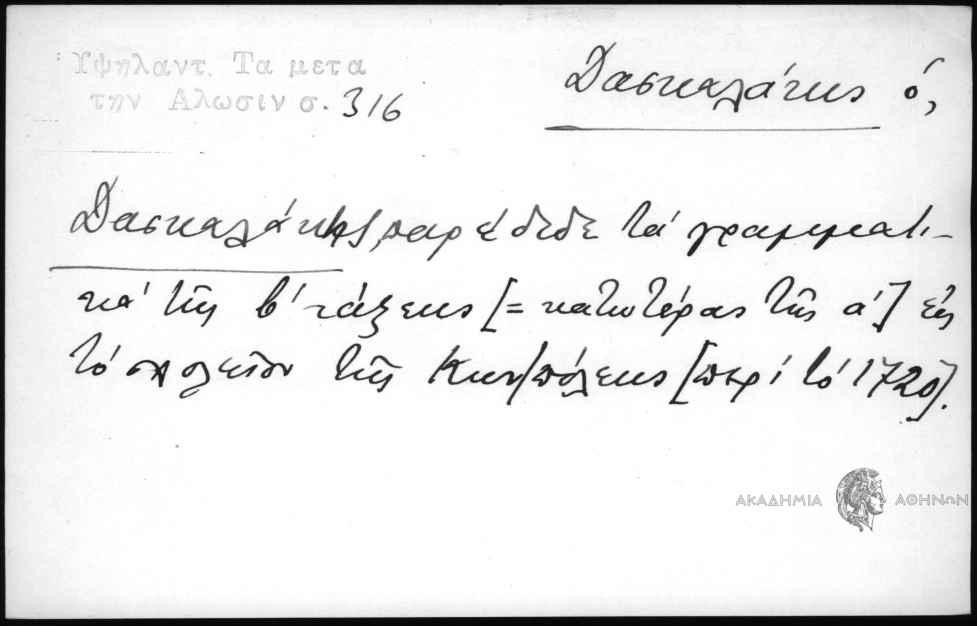 Ὑψηλαντ. Τα μετα
την Αλωσιν σ. 316
Δασκαλάκης ὁ,
Δασκαλάκης, παρέδιδε τά γραμματι-
κά τῆς β΄ τάξεως [= κατωτέρας τῆς α΄] εἰς
τό σχολεῖον τῆς Κων/πόλεως [περί τό 1720].
ΑΚΑΔΗΜΙΑ ΑΘΗΝΩΝ